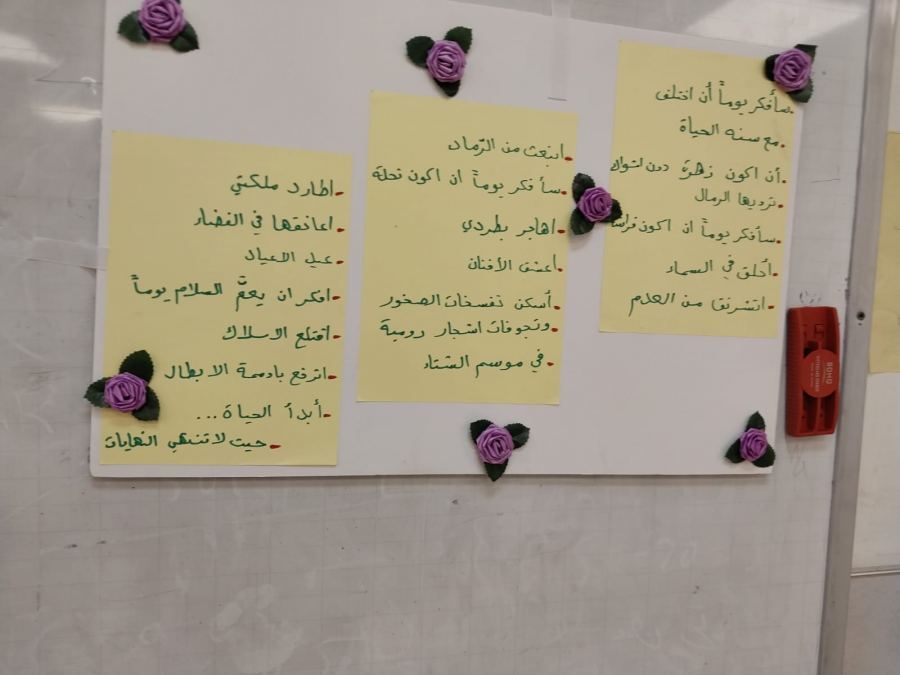 سأفكر يوماً أن اختلف
مع سنه الحياة
أن اكون زهرة دون اشواك
تزديها الرمال
سأفكر يوماً ان اكون فراشة
أحلق في السماء
اتشرنق من العدم
انبعث من الرّماد
سأفكر يوماً ان اكون نحلة
اهاجر بطردي
أعشق الأفنان
أسكن تفسخات الصخور
وتجوفات اشجار رومية
في موسم الشتاء
اطارد ملكتي
اعانقها في الفضاء
عيد الاعياد
افكر ان يعمَّ السلام يوماً
اقتلع الاسلاك
اترفع بادممة الابطال
أبدأ الحياة...
حيث لا تنتهي النهايات
SOHO